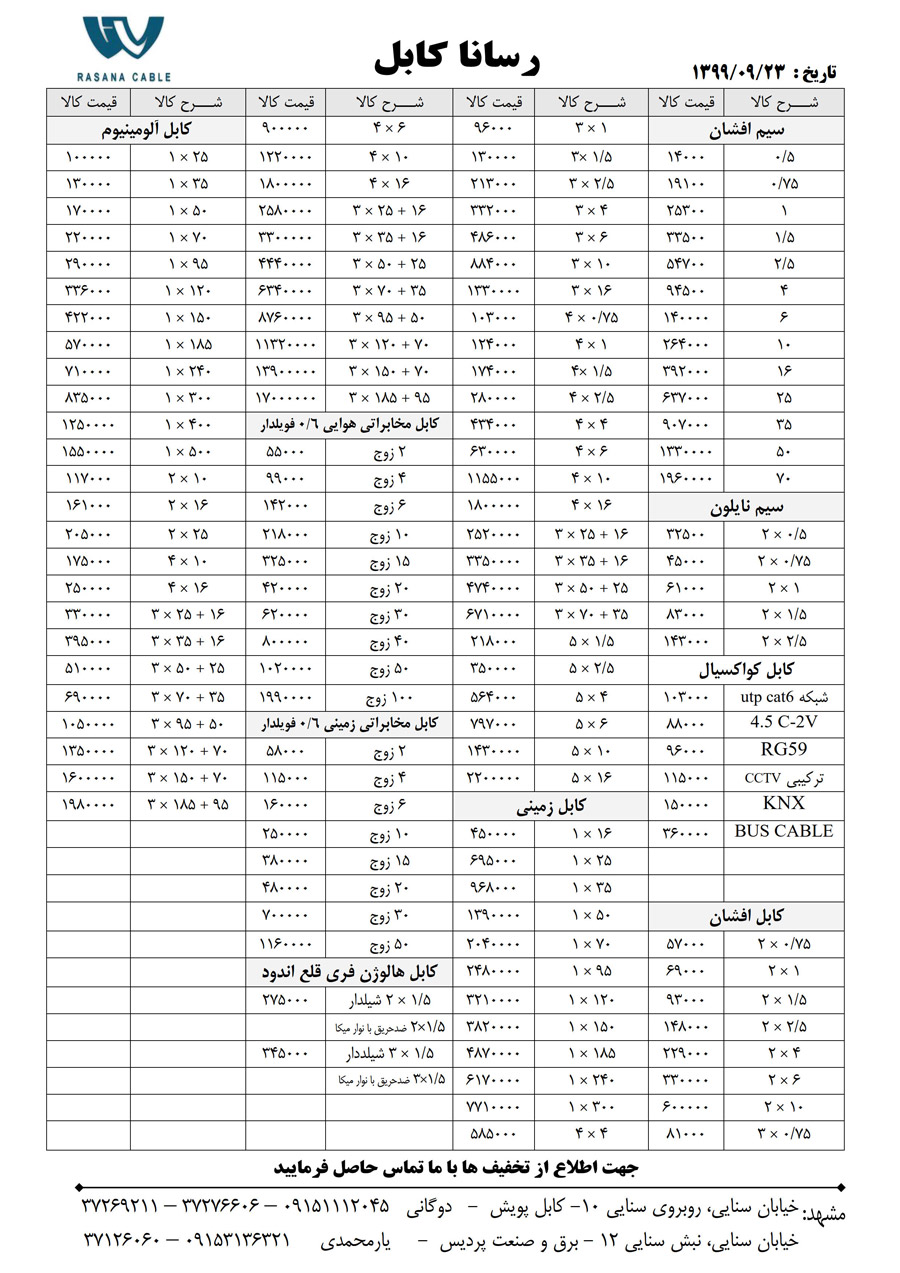 RASANA CABLE
رسانا کابل
تاریخ : ۱۳۹۹/۰۹/۲۳
شرح کالا قیمت کالا شرح کالا قیمت کالا شرح کالا قیمت کالا شرح کالا قیمت کالا
سیم افشان ۳ × ۱ ۹۶۰۰۰ ۴ × ۶ ۹۰۰۰۰۰ کابل آلومینیوم
۰/۵ ۱۴۰۰۰ ۳× ۱/۵ ۱۳۰۰۰۰ ۴ × ۱۰ ۱۲۲۰۰۰۰ ۱ × ۲۵ ۱۰۰۰۰۰
۰/۷۵ ۱۹۱۰۰ ۳ × ۲/۵ ۲۱۳۰۰۰ ۴ × ۱۶ ۱۸۰۰۰۰۰ ۱ × ۳۵ ۱۳۰۰۰۰
۱ ۲۵۳۰۰ ۳ × ۴ ۳۳۲۰۰۰ ۳ × ۲۵ + ۱۶ ۲۵۸۰۰۰۰ ۱ × ۵۰ ۱۷۰۰۰۰
۱/۵ ۳۳۵۰۰ ۳ × ۶ ۴۸۶۰۰۰ ۳ × ۳۵ + ۱۶ ۳۳۰۰۰۰۰ ۱ × ۷۰ ۲۲۰۰۰۰
۲/۵ ۵۴۷۰۰ ۳ × ۱۰ ۸۸۴۰۰۰ ۳ × ۵۰ + ۲۵ ۴۴۴۰۰۰۰ ۱ × ۹۵ ۲۹۰۰۰۰
۴ ۹۴۵۰۰ ۳ × ۱۶ ۱۳۳۰۰۰۰ ۳ × ۷۰ + ۳۵ ۶۳۴۰۰۰۰ ۱ × ۱۲۰ ۳۳۶۰۰۰
۶ ۱۴۰۰۰۰ ۴ × ۰/۷۵ ۱۰۳۰۰۰ ۳ × ۹۵ + ۵۰ ۸۷۶۰۰۰۰ ۱ × ۱۵۰ ۴۲۲۰۰۰
۱۰ ۲۶۴۰۰۰ ۴ × ۱ ۱۲۴۰۰۰ ۳ × ۱۲۰ + ۷۰ ۱۱۳۲۰۰۰۰ ۱ × ۱۸۵ ۵۷۰۰۰۰
۱۶ ۳۹۲۰۰۰ ۴× ۱/۵ ۱۷۴۰۰۰ ۳ × ۱۵۰ + ۷۰ ۱۳۹۰۰۰۰۰ ۱ × ۲۴۰ ۷۱۰۰۰۰
۲۵ ۶۳۷۰۰۰ ۴ × ۲/۵ ۲۸۰۰۰۰ ۳ × ۱۸۵ + ۹۵ ۱۷۰۰۰۰۰۰ ۱ × ۳۰۰ ۸۳۵۰۰۰
۳۵ ۹۰۷۰۰۰ ۴ × ۴ ۴۳۴۰۰۰ کابل مخابراتی هوایی ۰/۶ فویلدار ۱ × ۴۰۰ ۱۲۵۰۰۰۰
۵۰ ۱۳۳۰۰۰۰ ۴ × ۶ ۶۳۰۰۰۰ ۲ زوج ۵۵۰۰۰ ۱ × ۵۰۰ ۱۵۵۰۰۰۰
۷۰ ۱۹۶۰۰۰۰ ۴ × ۱۰ ۱۱۵۵۰۰۰ ۴ زوج ۹۹۰۰۰ ۲ × ۱۰ ۱۱۷۰۰۰
سیم نایلون ۴ × ۱۶ ۱۸۰۰۰۰۰ ۶ زوج ۱۴۲۰۰۰ ۲ × ۱۶ ۱۶۱۰۰۰
۲ × ۰/۵ ۳۲۵۰۰ ۳ × ۲۵ + ۱۶ ۲۵۲۰۰۰۰ ۱۰ زوج ۲۱۸۰۰۰ ۲ × ۲۵ ۲۰۵۰۰۰
۲ × ۰/۷۵ ۴۵۰۰۰ ۳ × ۳۵ + ۱۶ ۳۳۵۰۰۰۰ ۱۵ زوج ۳۲۵۰۰۰ ۴ × ۱۰ ۱۷۵۰۰۰
۲ × ۱ ۶۱۰۰۰ ۳ × ۵۰ + ۲۵ ۴۷۴۰۰۰۰ ۲۰ زوج ۴۲۰۰۰۰ ۴ × ۱۶ ۲۵۰۰۰۰
۲ × ۱/۵ ۸۳۰۰۰ ۳ × ۷۰ + ۳۵ ۶۷۱۰۰۰۰ ۳۰ زوج ۶۲۰۰۰۰ ۳ × ۲۵ + ۱۶ ۳۳۰۰۰۰
۲ × ۲/۵ ۱۴۳۰۰۰ ۵ × ۱/۵ ۲۱۸۰۰۰ ۴۰ زوج ۸۰۰۰۰۰ ۳ × ۳۵ + ۱۶ ۳۹۵۰۰۰
کابل کواکسیال ۵ × ۲/۵ ۳۵۰۰۰۰ ۵۰ زوج ۱۰۲۰۰۰۰ ۳ × ۵۰ + ۲۵ ۵۱۰۰۰۰
شبکه utp cat6 ۱۰۳۰۰۰ ۵ × ۴ ۵۶۴۰۰۰ ۱۰۰ زوج ۱۹۹۰۰۰۰ ۳ × ۷۰ + ۳۵ ۶۹۰۰۰۰
4.5 C-2V ۸۸۰۰۰ ۵ × ۶ ۷۹۷۰۰۰ کابل مخابراتی زمینی ۰/۶ فویلدار ۳ × ۹۵ + ۵۰ ۱۰۵۰۰۰۰
RG59 ۹۶۰۰۰ ۵ × ۱۰ ۱۴۳۰۰۰۰ ۲ زوج ۵۸۰۰۰ ۳ × ۱۲۰ + ۷۰ ۱۳۵۰۰۰۰
ترکیبی CCTV ۱۱۵۰۰۰ ۵ × ۱۶ ۲۲۰۰۰۰۰ ۴ زوج ۱۱۵۰۰۰ ۳ × ۱۵۰ + ۷۰ ۱۶۰۰۰۰۰
KNX ۱۵۰۰۰۰ کابل زمینی ۶ زوج ۱۶۰۰۰۰ ۳ × ۱۸۵ + ۹۵ ۱۹۸۰۰۰۰
BUS CABLE ۳۶۰۰۰۰ ۱ × ۱۶ ۴۵۰۰۰۰ ۱۰ زوج ۲۵۰۰۰۰
۱ × ۲۵ ۶۹۵۰۰۰ ۱۵ زوج ۳۸۰۰۰۰
۱ × ۳۵ ۹۶۸۰۰۰ ۲۰ زوج ۴۸۰۰۰۰
کابل افشان ۱ × ۵۰ ۱۳۹۰۰۰۰ ۳۰ زوج ۷۰۰۰۰۰
۲ × ۰/۷۵ ۵۷۰۰۰ ۱ × ۷۰ ۲۰۴۰۰۰۰ ۵۰ زوج ۱۱۶۰۰۰۰
۲ × ۱ ۶۹۰۰۰ ۱ × ۹۵ ۲۴۸۰۰۰۰ کابل هالوژن فری قلع اندود
۲ × ۱/۵ ۹۳۰۰۰ ۱ × ۱۲۰ ۳۲۱۰۰۰۰ ۲ × ۱/۵ شیلدار ۲۷۵۰۰۰
۲ × ۲/۵ ۱۴۸۰۰۰ ۱ × ۱۵۰ ۳۸۲۰۰۰۰ ۲×۱/۵ ضدحریق با نوار میکا
۲ × ۴ ۲۲۹۰۰۰ ۱ × ۱۸۵ ۴۸۷۰۰۰۰ ۳ × ۱/۵ شیلددار ۳۴۵۰۰۰
۲ × ۶ ۳۳۰۰۰۰ ۱ × ۲۴۰ ۶۱۷۰۰۰۰ ۳×۱/۵ ضدحریق با نوار میکا
۲ × ۱۰ ۶۰۰۰۰۰ ۱ × ۳۰۰ ۷۷۱۰۰۰۰
۳ × ۰/۷۵ ۸۱۰۰۰ ۴ × ۴ ۵۸۵۰۰۰
جهت اطلاع از تخفیف ها با ما تماس حاصل فرمایید
مشهد: خیابان سنایی، روبروی سنایی ۱۰- کابل پویش - دوگانی ۰۹۱۵۱۱۱۲۰۴۵ – ۳۷۲۷۶۶۰۶ – ۳۷۲۶۹۲۱۱
خیابان سنایی، نبش سنایی ۱۲ - برق و صنعت پردیس - یارمحمدی ۰۹۱۵۳۱۳۶۳۲۱ – ۳۷۱۲۶۰۶۰